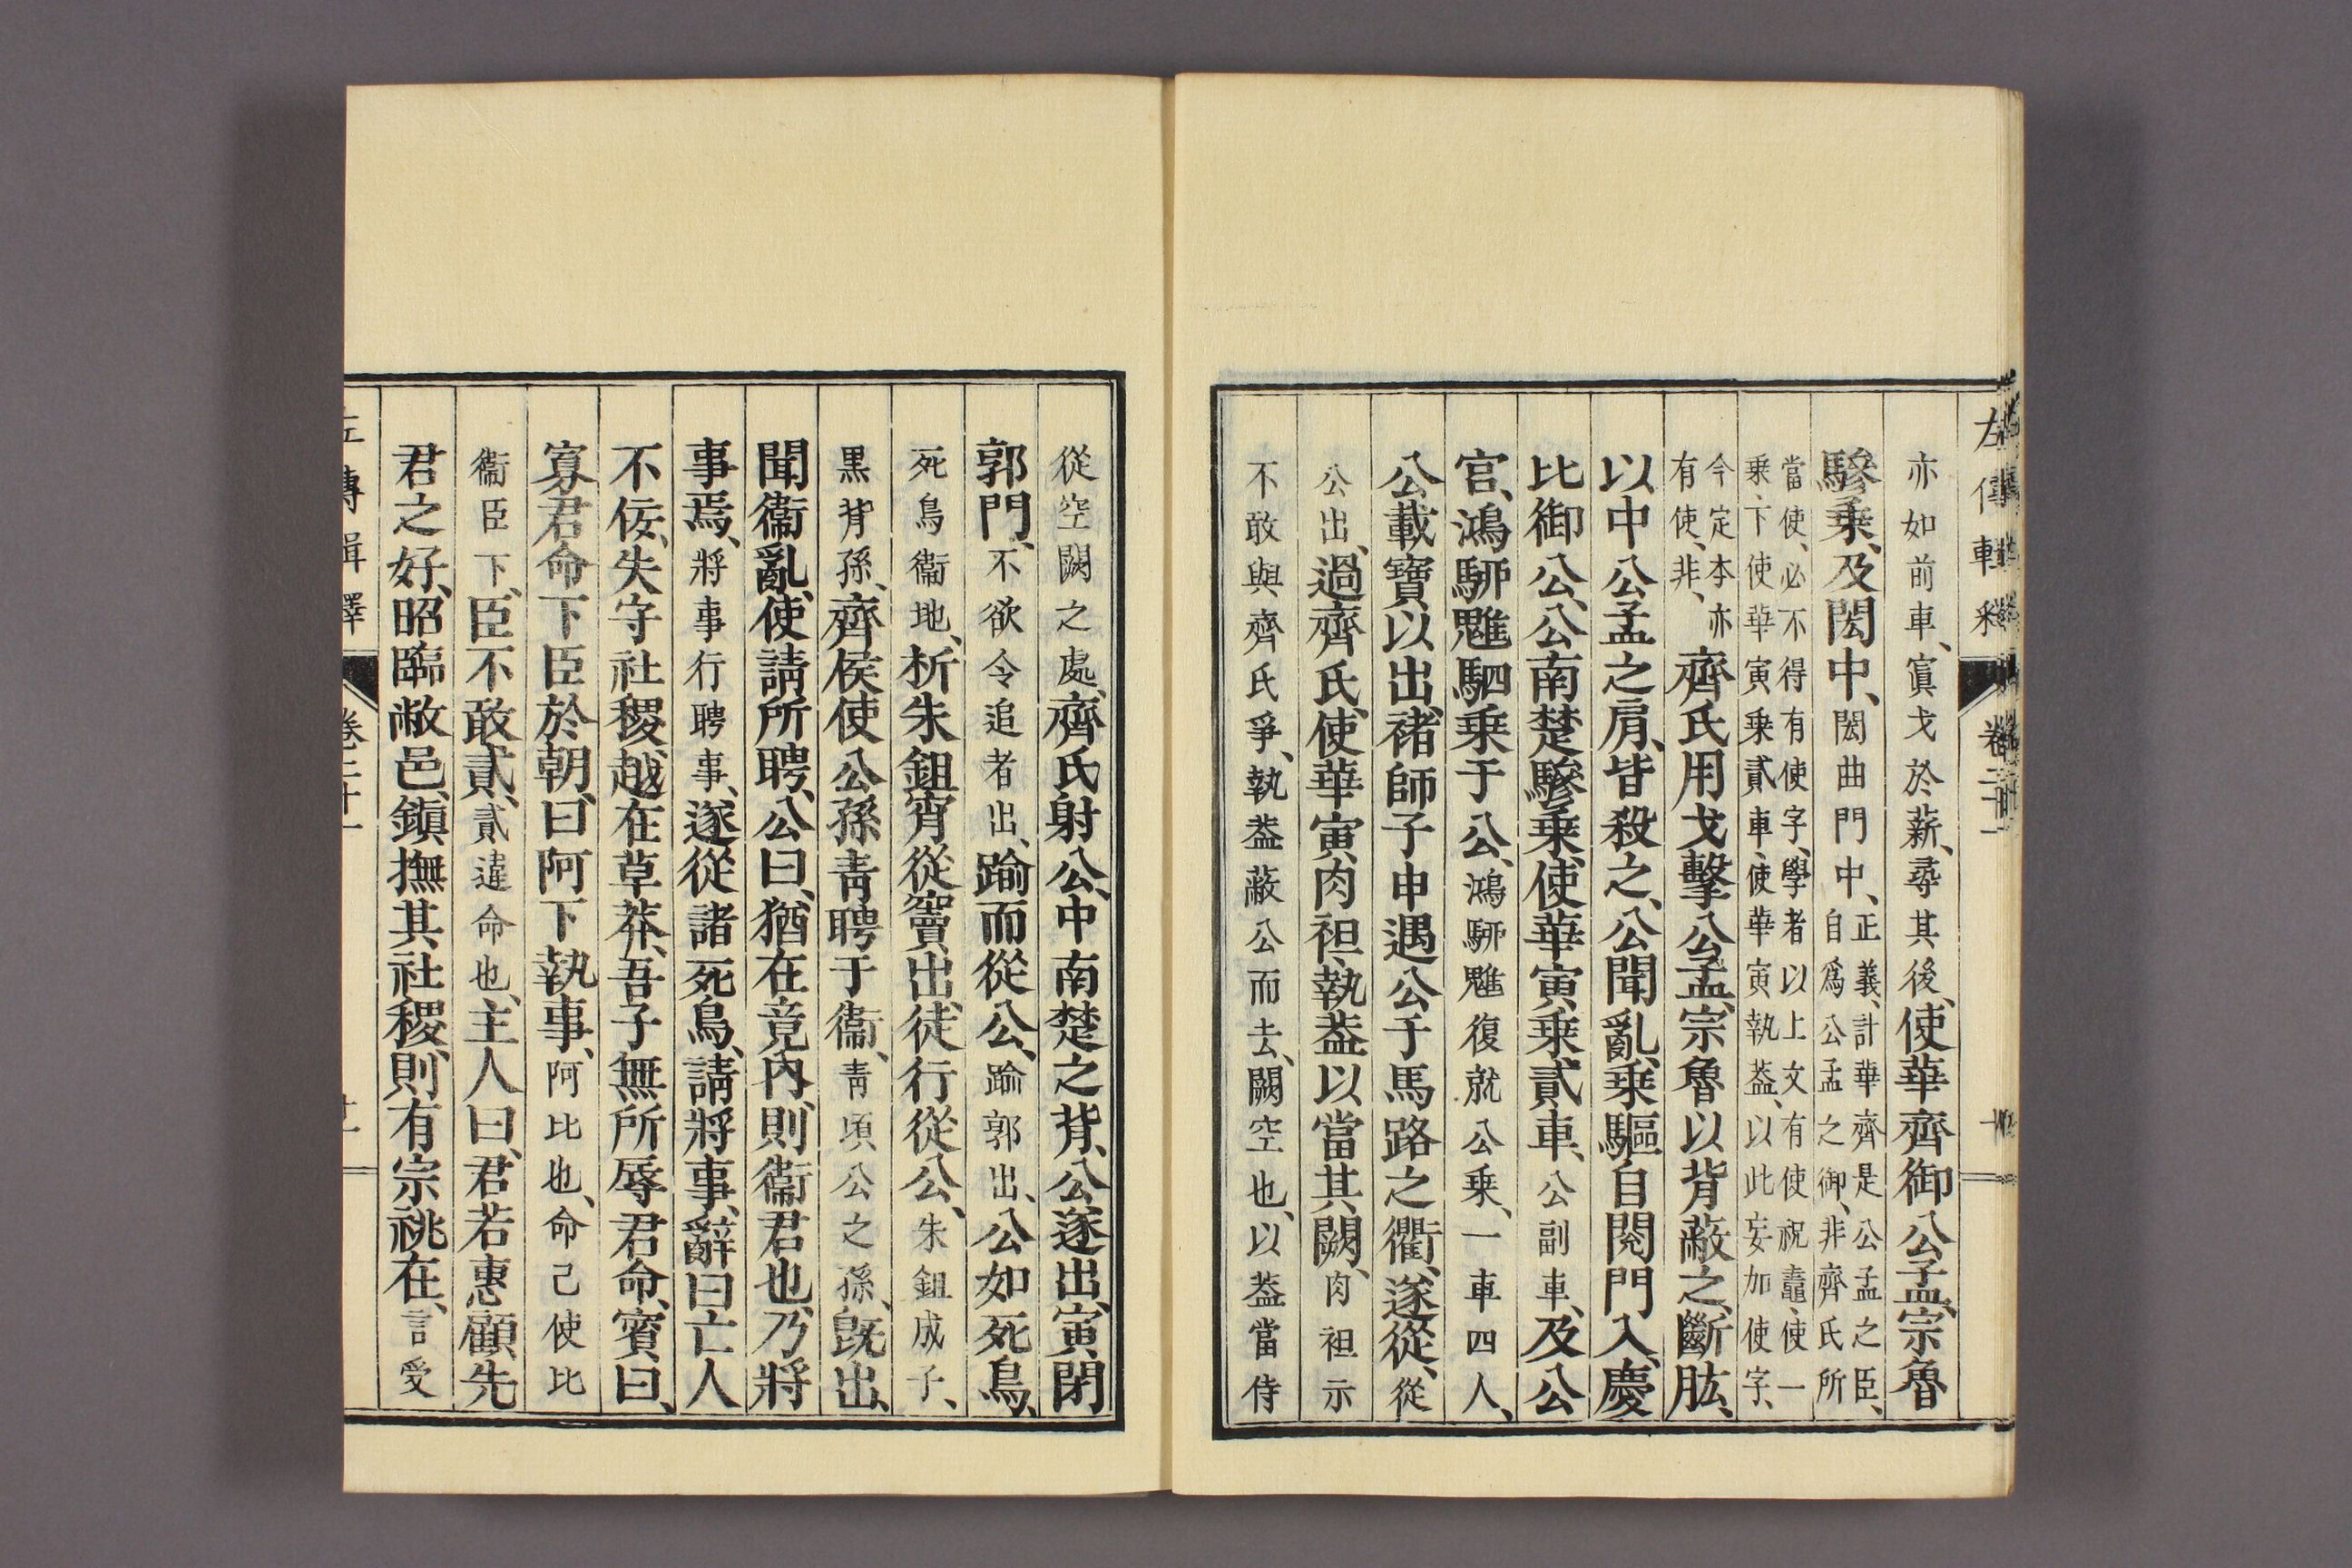 亦如前車、寘戈於薪、尋其後、使華齊御公孟、宗魯
驂乗、及閎中、閎曲門中、正義、計華齊是公孟之臣、自爲公孟之御、非齊氏所
當使、必不得有使字、學者以上文有使祝鼃、使一乗、下使華寅乗貳車、使華寅執葢、以此妄加使字、
今定本亦有使、非、齊氏用戈擊公孟、宗魯以背蔽之、斷肱、
以中公孟之肩、皆殺之、公聞亂、乗驅自閱門入、慶
比御公、公南楚驂乗、使華寅乗貳車、公副車、及公
宮、鴻駵魋駟乗于公、鴻駵魋復就公乗、一車四人、
公載寶以出、褚師子申遇公于馬路之衢、遂從、從
公出、過齊氏、使華寅肉袒、執葢以當其闕、肉袒示
不敢與齊氏爭、執葢蔽公而去、闕空也、以葢當侍
從空闕之處、齊氏射公、中南楚之背、公遂出、寅閉
郭門、不欲令追者出、踰而從公、踰郭出、公如死鳥、
死鳥衞地、析朱鉏宵從竇出、徒行從公、朱鉏成子、
黒背孫、齊侯使公孫靑聘于衞、靑頃公之孫、旣出、
聞衞亂、使請所聘、公曰、猶在竟內、則衞君也、乃將
事焉、將事行聘事、遂從諸死鳥、請將事、辭曰亡人
不佞、失守社稷、越在草莽、吾子無所辱君命、賓曰、
寡君命下臣於朝、曰阿下執事、阿比也、命己使比
衞臣下、臣不敢貳、貳違命也、主人曰、君若惠顧先
君之好、昭臨敝邑、鎭撫其社稷、則有宗祧在、言受